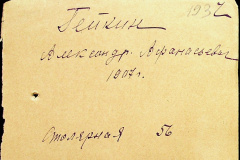 1937
Гейкин
Александр Афанасьевич
1907 г.
Столярная 56